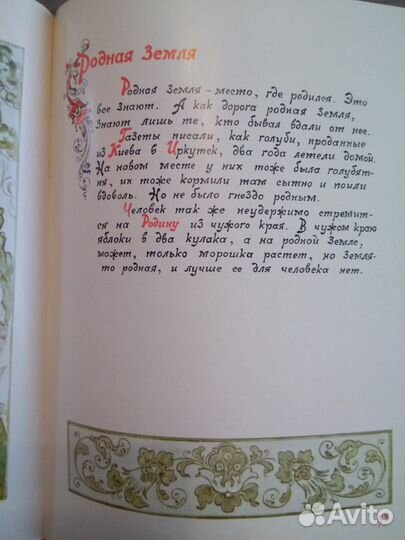 Родная Земля
Родная Земля – место, где родился. Это
все знают. А как дорога родная Земля,
знают лишь те, кто бывал вдали от нее.
Газеты писали, как голуби, проданные
из Киева в Иркутск, два года летели домой.
На новом месте у них тоже была голубят-
ня, их тоже кормили там сытно и поили
вдоволь. Но не было гнездо родным.
Человек так же неудержимо стремит-
ся на Родину из чужого края. В чужом краю
яблоки в два кулака, а на родной Земле,
может, только морошка растет, но Земля-
то родная, и лучше ее для человека нет.
Avito